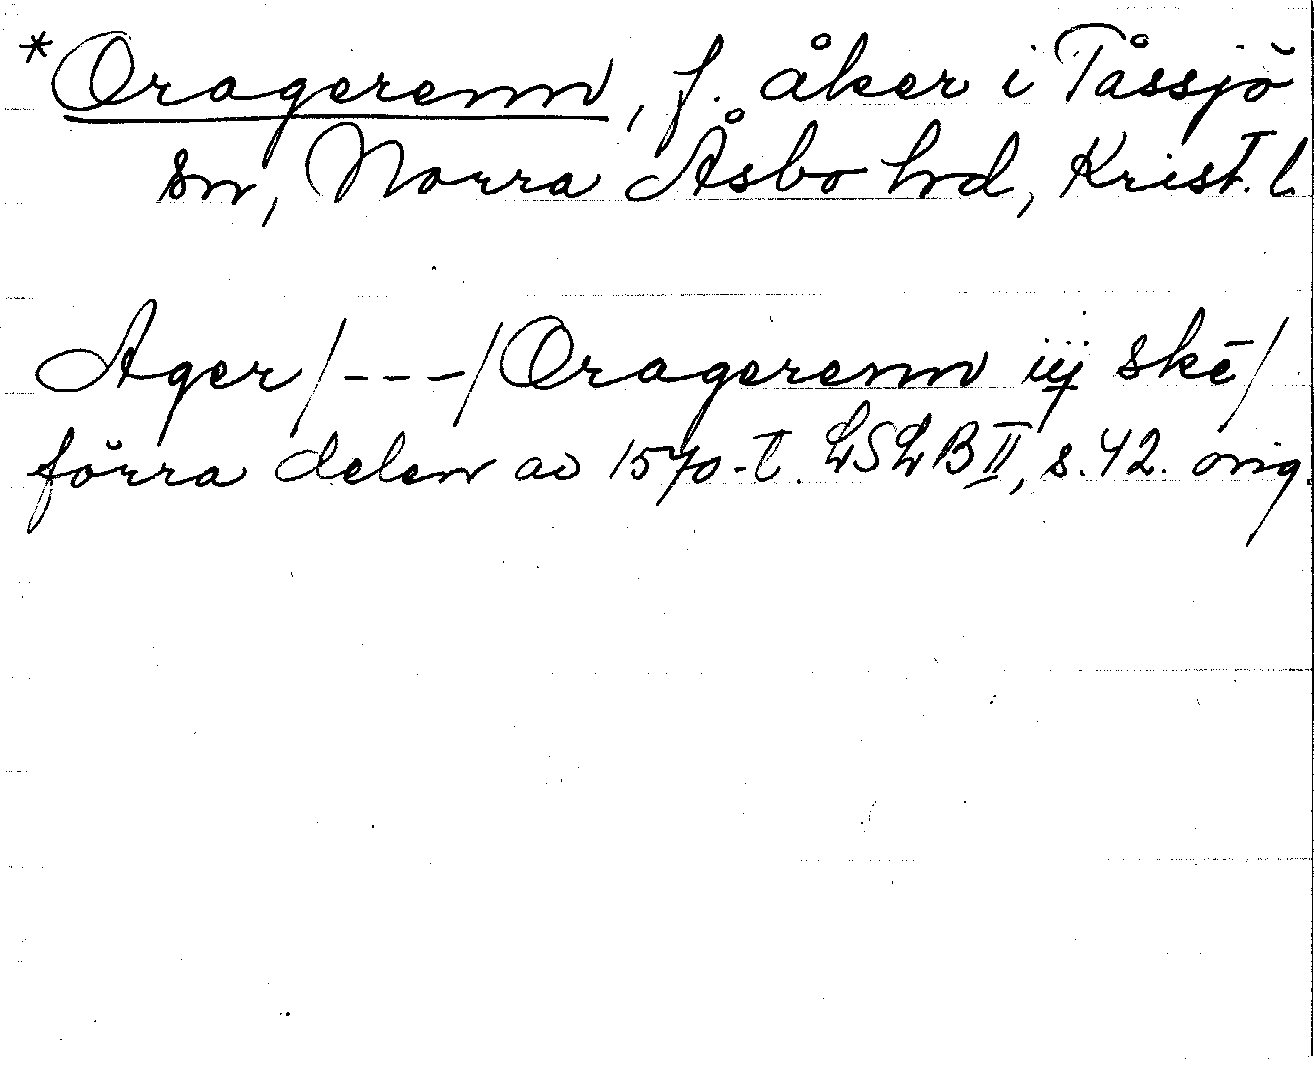 *Oragerenn, f. åker i Tåssjö
sn, Norra Åsbo hd, Krist. l.
Ager/---/Oragerenn iij skē/
förra delen av 1570-t. LSLB II, s.42. orig.